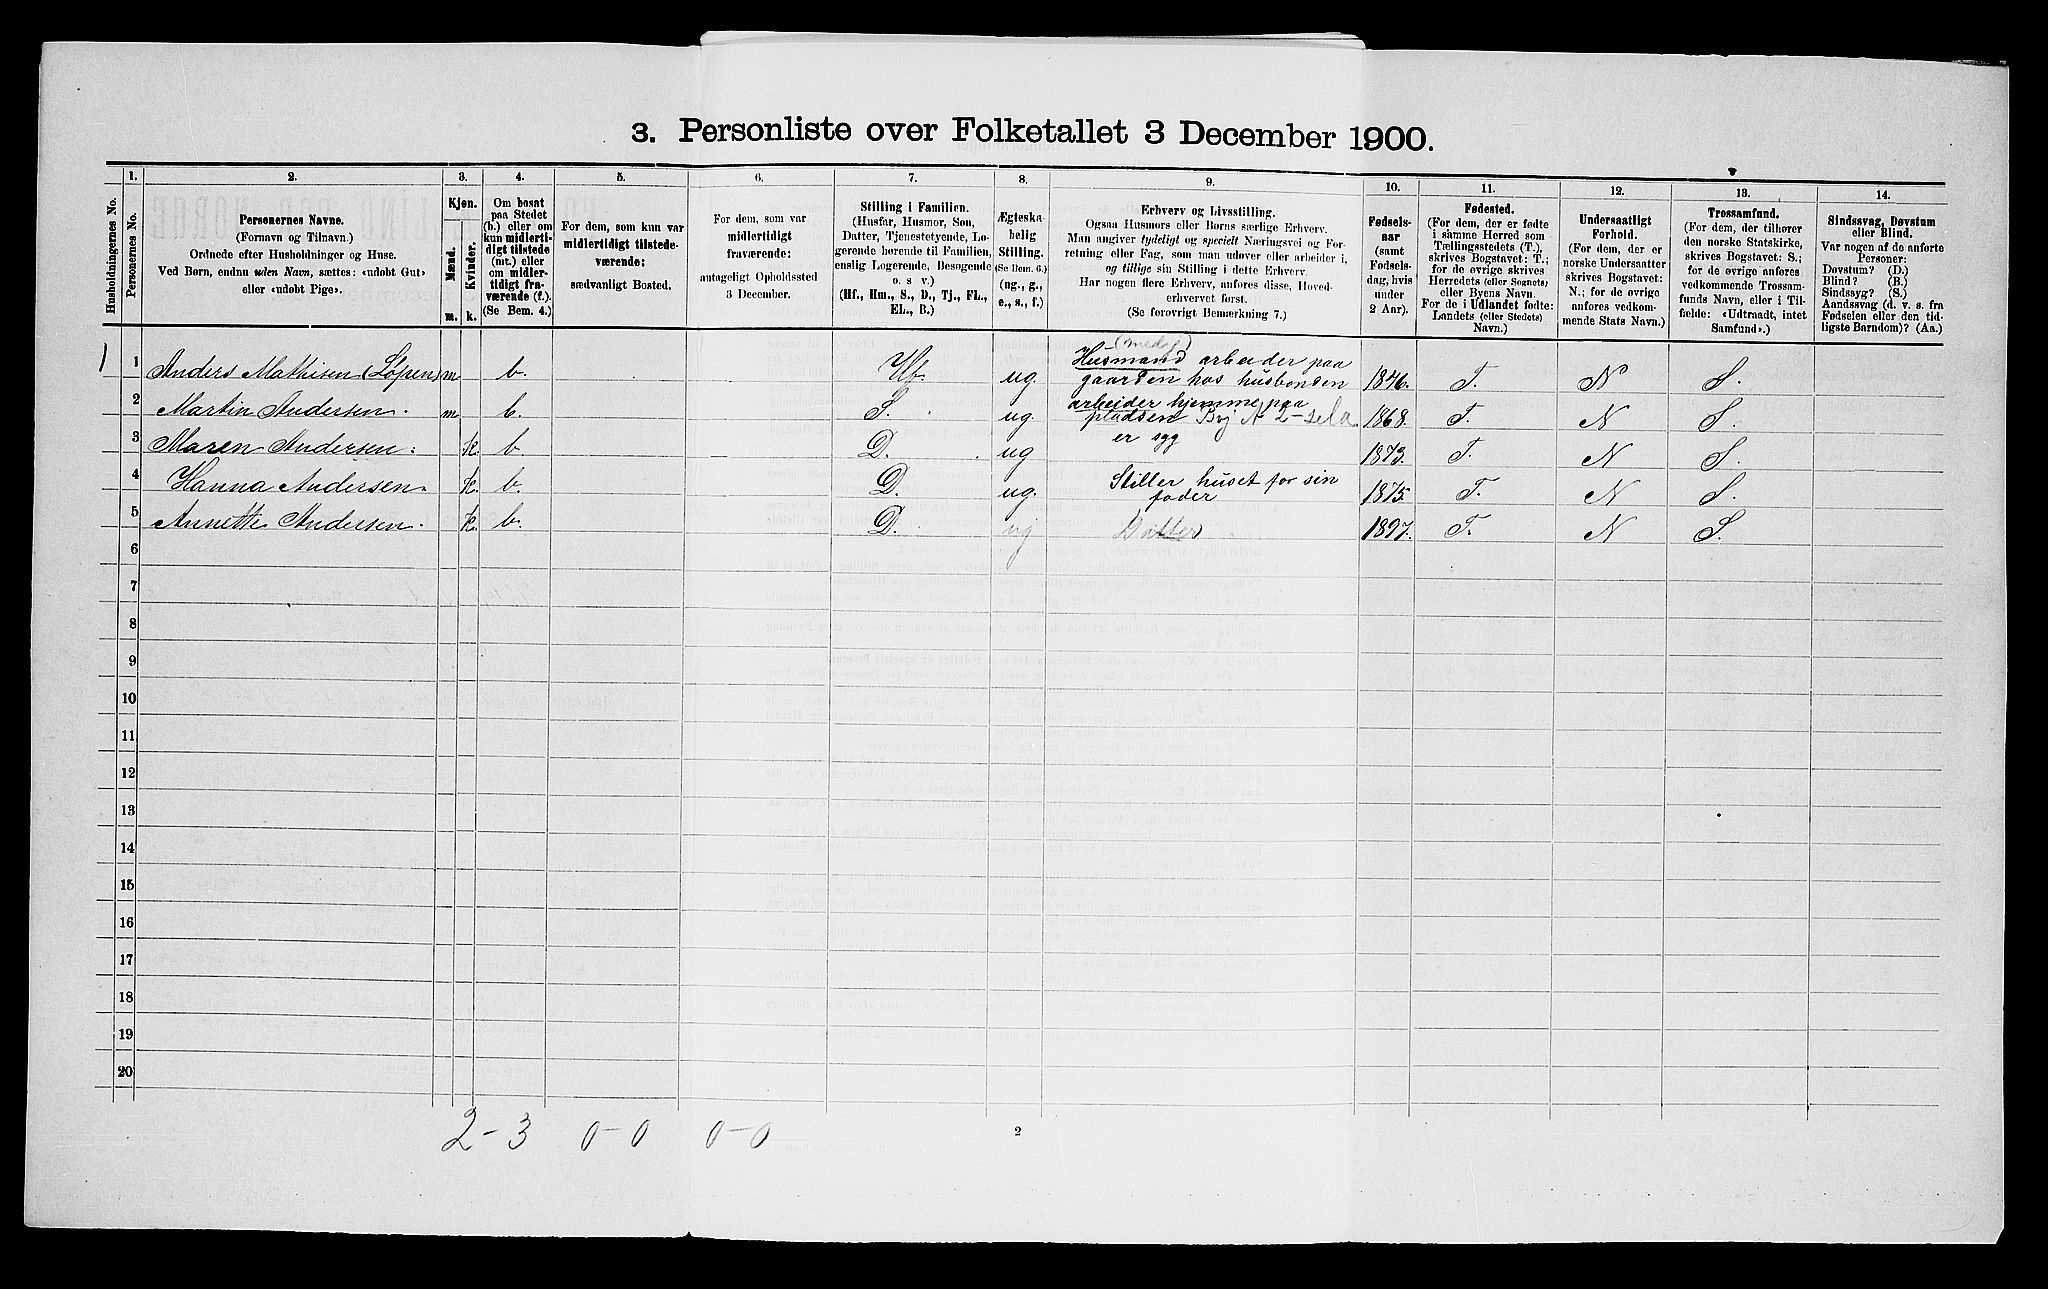 3. Personliste over Folketallet 3 December 1900.
Husholdningernes No.
1.
Personernes No.
2.
Personernes Navne.
(Fornavn og Tilnavn.)
Ordnede efter Husholdninger og Huse.
Ved Børn, endnu uden Navn, sættes: «udøbt Gut»
eller «udøbt Pige».
3.
Kjøn.
Mænd.
Kvinder.
m.
k.
4.
Om bosat
paa Stedet
(b.) eller om
kun midlerti-
digt tilstede
(mt.) eller
om midler-
tidigt fra-
værende (f.).
(Se Bem. 4.)
5.
For dem, som kun var
midlertidigt tilstede-
værende:
sædvanligt Bosted.
6.
For dem, som var
midlertidigt
fraværende:
antageligt Opholdssted
3 December.
7.
Stilling i Familien.
(Husfar, Husmor, Søn,
Datter, Tjenestetyende, Lo-
gerende hørende til Familien,
enslig Logerende, Besøgende
o. s v.)
(Hf., Hm., S., D., Tj., FL.,
EL., B.)
8.
Ægteska-
belig
Stilling.
(Se Bem. 6.)
(ug., g.,
e., s., f.)
9.
Erhverv og Livsstilling.
Ogsaa Husmors eller Børns særlige Erhverv.
Man angiver tydeligt og specielt Næringsvei og For-
retning eller Fag, som man udøver eller arbeider i,
og tillige sin Stilling i dette Erhverv.
Har nogen flere Erhverv, anføres disse, Hoved-
erhvervet først.
(Se forøvrigt Bemærkning 7.)
10.
Fødsels-
aar
(samt
Fødsels-
dag, hvis
under
2 Aar).
11.
Fødested.
(For dem, der er fødte
i samme Herred som
Tællingsstedets (T.),
skrives Bogstavet: T.;
for de øvrige skrives
Herredets (eller Sognets)
eller Byens Navn.
For de i Udlandet fødte:
Landets (eller Stedets)
Navn.)
12.
Undersaatligt
Forhold.
(For dem, der er
norske Undersaatter
skrives Bogstavet:
N.; for de øvrige
anføres vedkom-
mende Stats Navn.)
13.
Trossamfund.
(For dem, der tilhører
den norske Statskirke,
skrives Bogstavet: S.;
for de øvrige anføres
vedkommende Trossam-
funds Navn, eller i Til-
fælde: «Udtraadt, intet
Samfund».)
14.
Sindssvag, Døvstum
eller Blind.
Var nogen af de anførte
Personer:
Døvstum? (D.)
Blind? (B.)
Sindssyg? (S.)
Aandssvag (d. v. s. fra
Fødselen eller den tid-
ligste Barndom)? (Aa.)
(medaj)
1 1 Anders Mathisen (Løpen) m b. Hf. ug. Husmand arbeider paa
gaarden hos husbonden 1846. T. N S.
2 Martin Andersen. m b. S. ug arbeider hjemme paa
pladsen 1868. T. N S.
3 Maren Andersen. k. b D. ug er syg 1873. T. N S.
4 Hanna Andersen. k. b. D. ug. Stiller huset for sin
fader 1875. T. N S.
5 Annette Andersen. k. b. D. ug Datter 1897. T. N S.
6
7
8
9
10
11
12
13
14
15
16
17
18
19
20
2-3 0-0 0-0
2